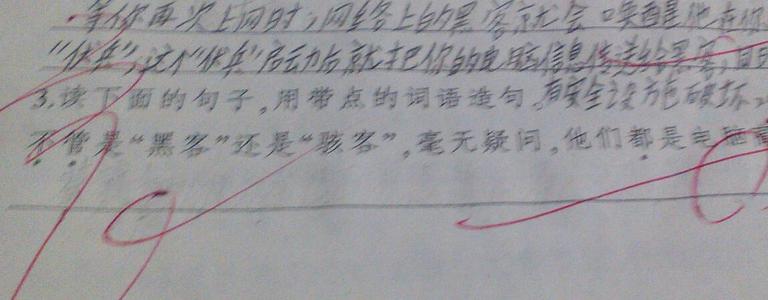 等你再次上网时，网络上的黑客就会唤醒他在你
"伏兵"，这个"伏兵"启动后就把你的电脑信息传送给黑客，
3.读下面的句子，用带点的词语造句。有安全设方也破坏
不管是"黑客"还是"骇客"，毫无疑问，他们都是电脑